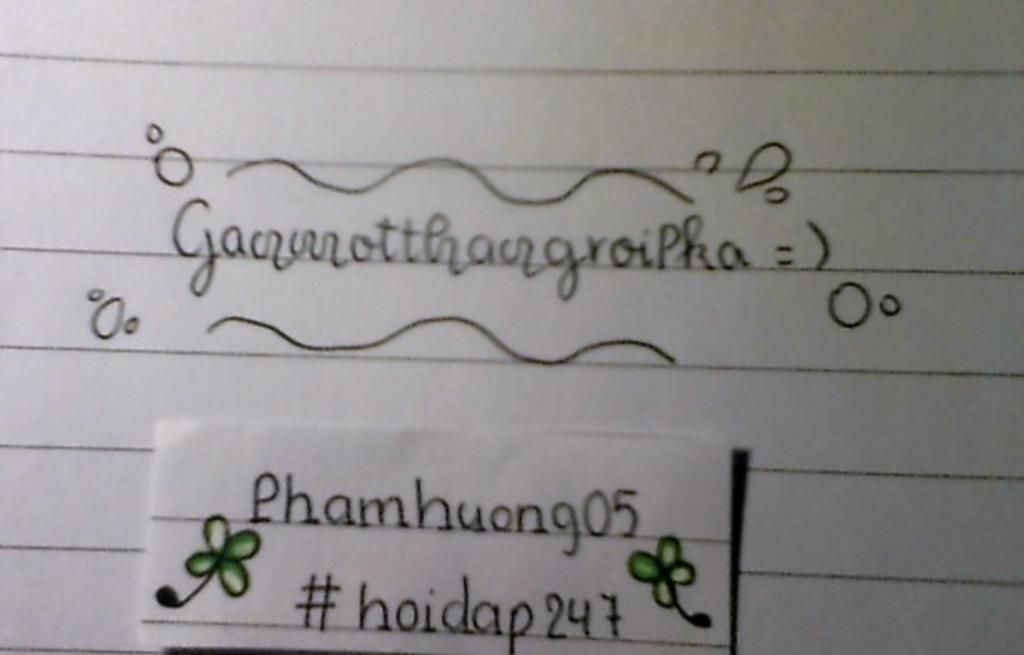 Gaczmotthaczgroipha =)
Phamhuong05
#hoidap247